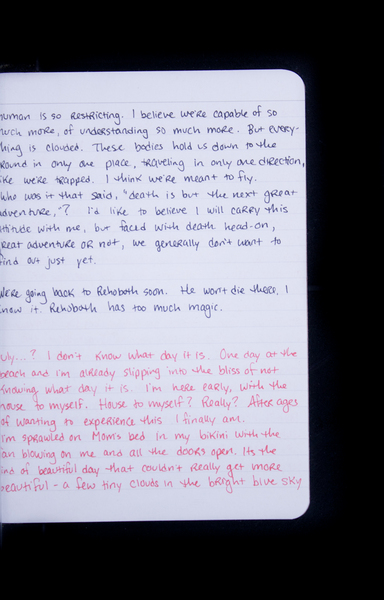 human is so restricting. I believe we're capable of so
much more, of understanding so much more. But every-
thing is clouded. These bodies hold us down to the
ground in only one place, traveling in only one direction,
like we're trapped. I think we're meant to fly.
Who was it that said, "death is but the next great
adventure,"? I'd like to believe I will carry this
attitude with me, but faced with death head-on,
great adventure or not, we generally don't want to
find out just yet.
We're going back to Rehoboth soon. He won't die there, I
know it. Rehoboth has too much magic.
July...? I don't know what day it is. One day at the
beach and I'm already slipping into the bliss of not
knowing what day it is. I'm here early, with the
house to myself. House to myself? Really? After ages
of wanting to experience this I finally am.
I'm sprawled on Mom's bed in my bikini with the
fan blowing on me and all the doors open. Its the
kind of beautiful day that couldn't really get more
beautiful - a few tiny clouds in the bright blue sky